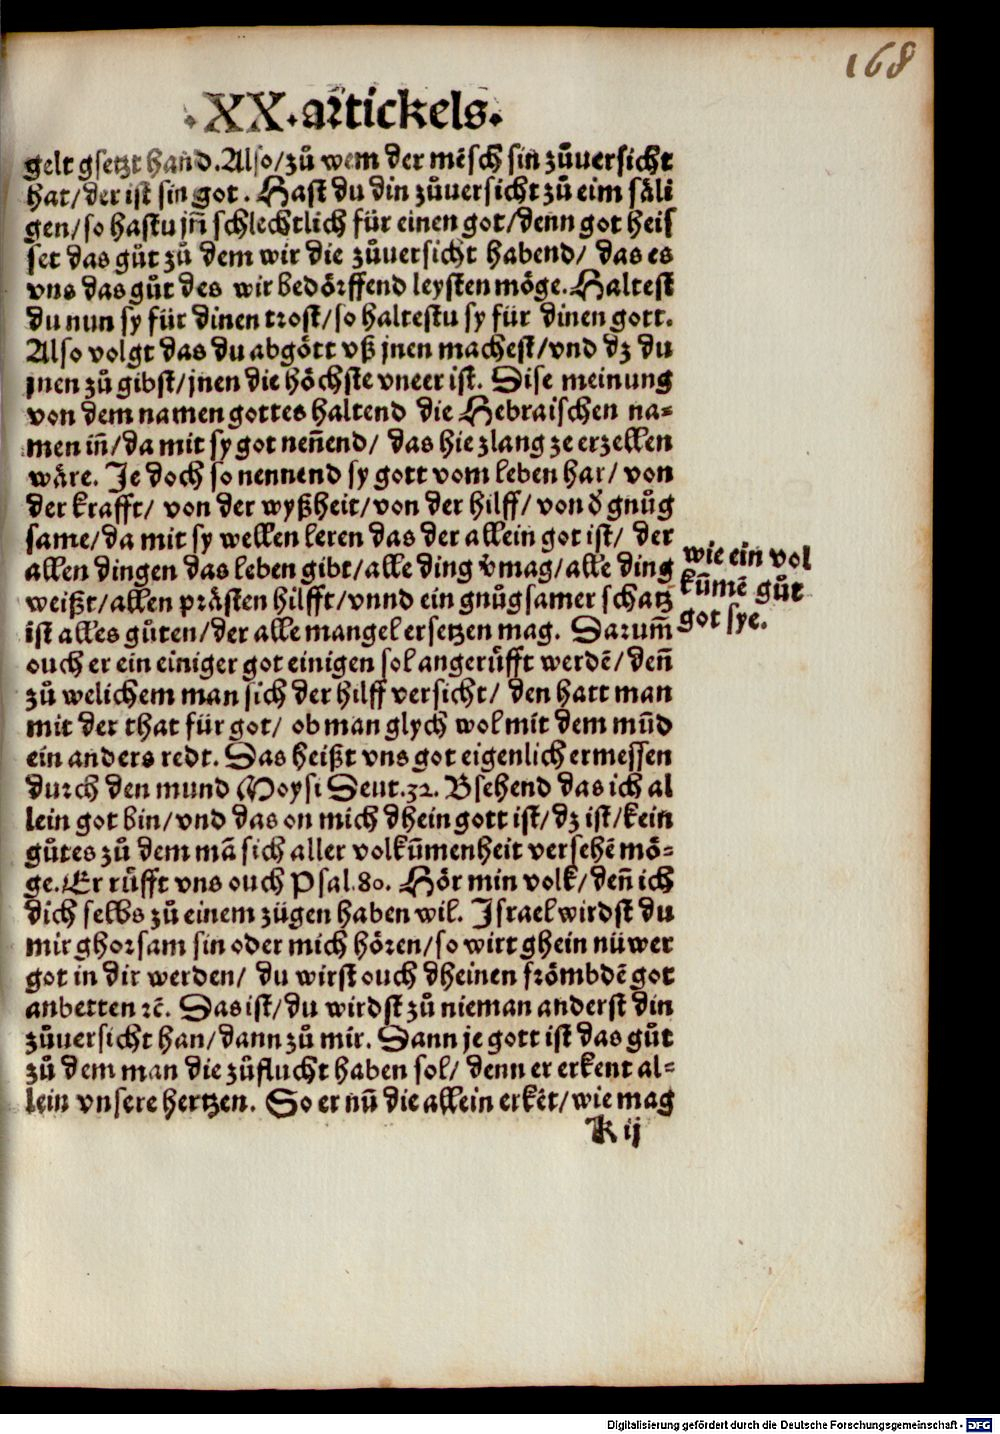 168
.XX.artickels.
gelt gsetzt hand. Also/zů wem der mēsch sin zůuersicht
hat/der ist sin got. Hast du din zůuersicht zů eim säli
gen/so hastu jn̄ schlechtlich für einen got/denn got heis
set das gůt zů dem wir die zůuersicht habend/ das es
vns das gůt des wir bedörffend leysten möge. Haltest
du nun sy für dinen trost/so haltestu sy für dinen gott.
Also volgt das du abgött vß jnen machest/vnd dz du
jnen zů gibst/jnen die höchste vneer ist. Dise meinung
von dem namen gottes haltend die Hebraischen na⸗
men in̄/da mit sy got nen̄end/ das hie zlang ze erzellen
wäre. Je doch so nennend sy gott vom leben har/ von
der krafft/ von der wyßheit/von der hilff/ von d̓ gnůg
same/da mit sy wellen leren das der allein got ist/ der
allen dingen das leben gibt/alle ding v̓mag/alle ding
weißt/allen prästen hilfft/vnnd ein gnůgsamer schatz
ist alles gůten/der alle mangel ersetzen mag. Darum̄
ouch er ein einiger got einigen sol angerůfft werdē/ den̄
zů welichem man sich der hilff versicht/ den hatt man
mit der that für got/ ob man glych wol mit dem mūd
ein anders redt. Das heißt vns got eigenlich ermessen
durch den mund Moysi Deut.32. Bsehend das ich al
lein got bin/vnd das on mich dhein gott ist/dz ist/kein
gůtes zů dem mā sich aller volkūmenheit versehē mö⸗
ge. Er růfft vns ouch Psal.80. Hör min volk/den̄ ich
dich selbs zů einem zügen haben wil. Israel wirdst du
mir ghorsam sin oder mich hören/so wirt ghein nüwer
got in dir werden/ du wirst ouch dheinen frömbdē got
anbetten ꝛc̄. Das ist/du wirdst zů nieman anderst din
zůuersicht han/dann zů mir. Dann je gott ist das gůt
zů dem man die zůflucht haben sol/ denn er erkent al⸗
lein vnsere hertzen. So er nū die allein erkēt/wie mag
K ij
wie ein vol
kūmē gůt
got sye.
Digitalisierung gefördert durch die Deutsche Forschungsgemeinschaft - DFG